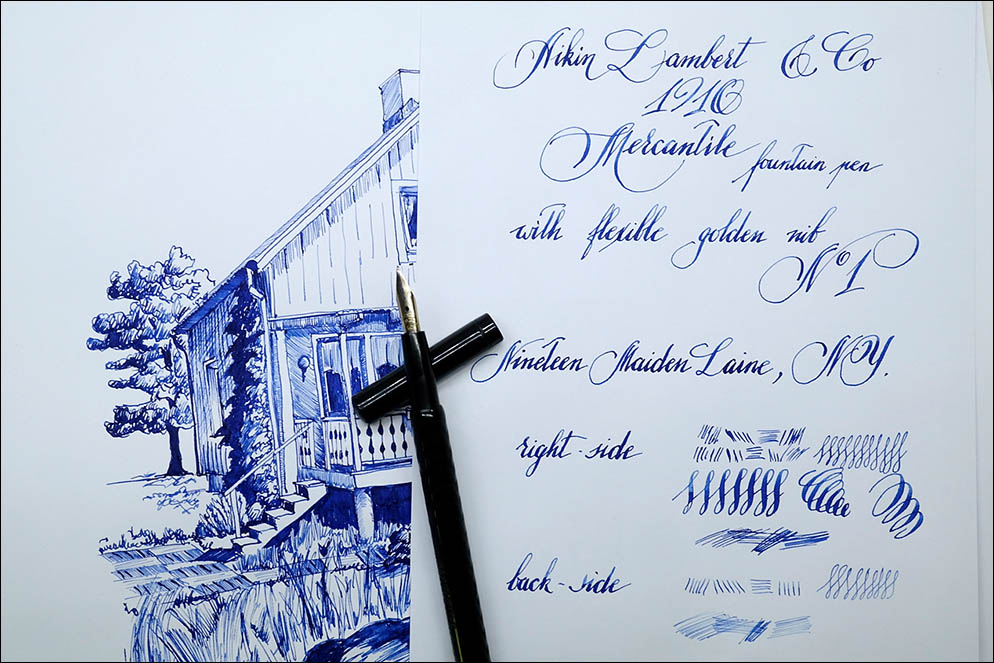 Aikin Lambert & Co
1910
Mercantile fountain pen
with flexible golden nib
Nº1
Nineteen Maiden Laine, NY.
right-side
back-side